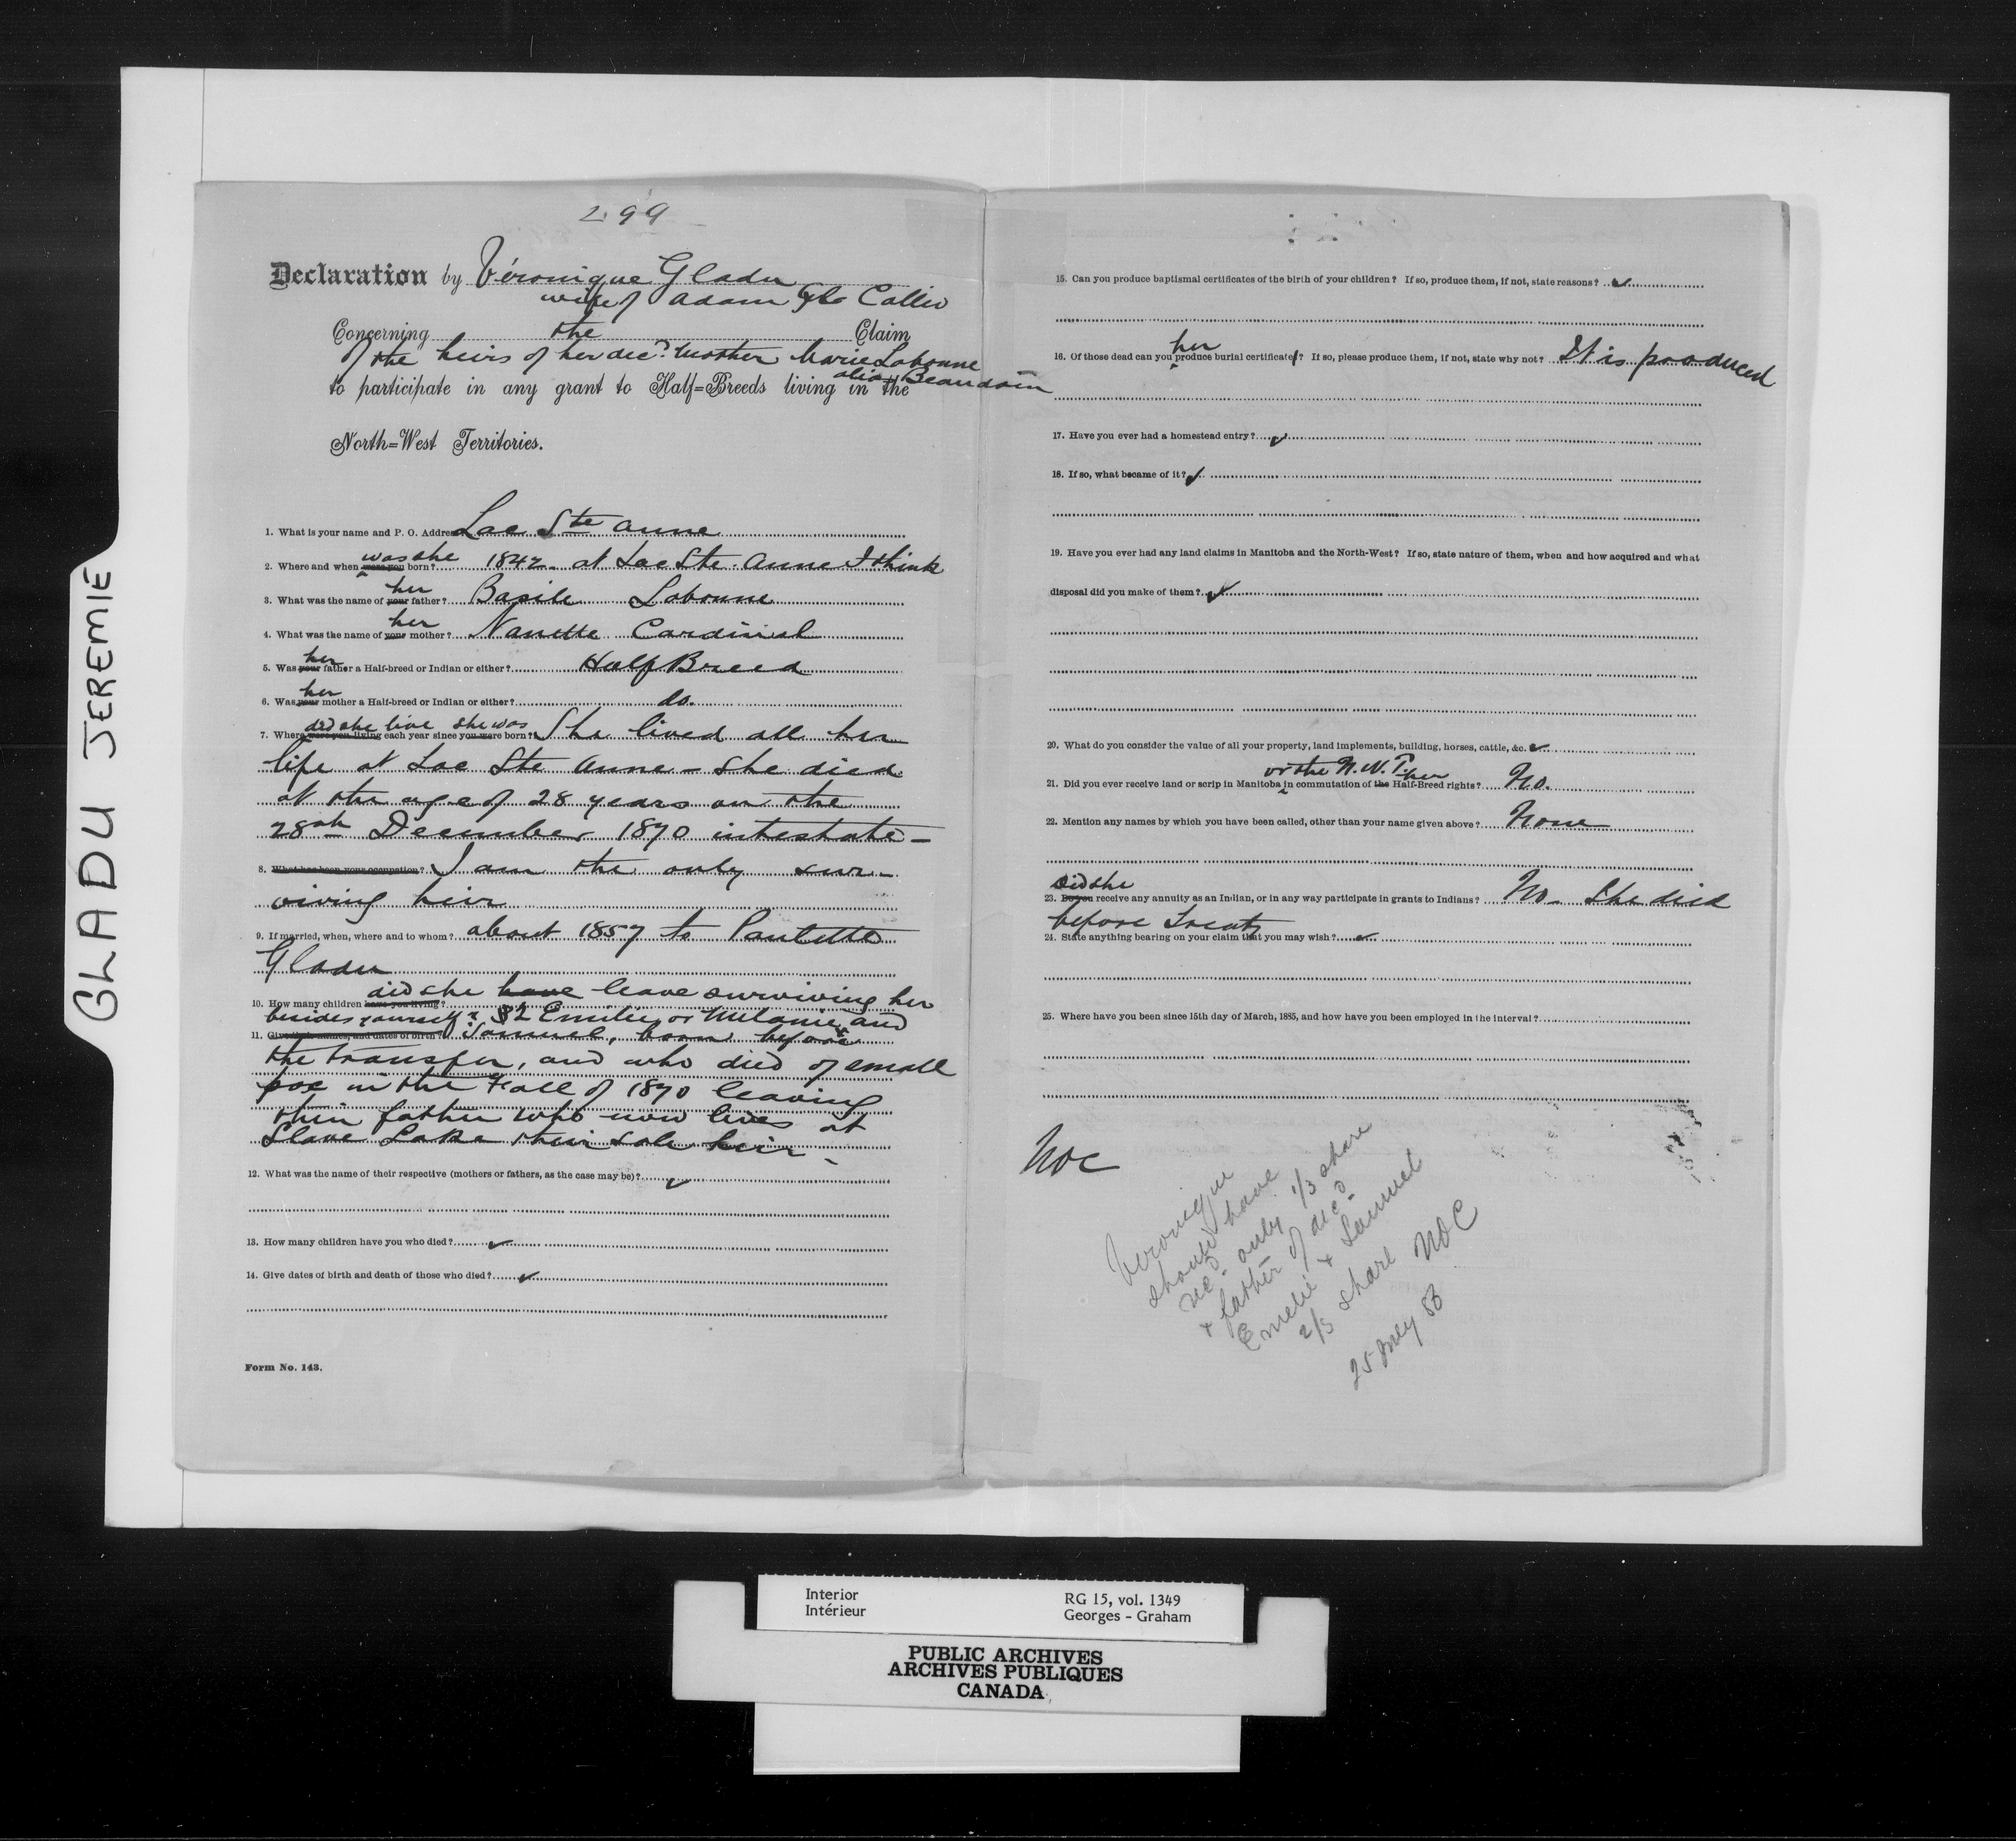 GLADU JEREMIE
299
Declaration by Véronique Gladu
wife of Adam Callio
Concerning the Claim
of the heirs of her decd. mother Marie Labonne
alias Beaudoin
to participate in any grant to Half=Breeds living in the
North=West Territories.
1. What is your name and P. O. Address? Lac Ste Anne
was she
2. Where and when were you born? 1842 - at Lac Ste. Anne I think
her
3. What was the name of your father? Basile Labonne
her
4. What was the name of your mother? Nanette Cardinal
her
5. Was your father a Half-breed or Indian or either? Half Breed
her
6. Was your mother a Half-breed or Indian or either? do.
did she live she was
7. Where were you living each year since you were born? She lived all her
life at Lac Ste Anne - She died
at the age of 28 years on the
28th December 1870 intestate -
8. What has been your occupation? I am the only sur-
viving heir
9. If married, when, where and to whom? about 1857 to Paulette
Gladu
did she have leave surviving her
10. How many children have you living?
besides yourself? 2 Emilie or Melanie and
11. Give their names, and dates of birth Samuel, born before
the transfer, and who died of small
pox in the Fall of 1870 leaving
their father who now lives at
Slave Lake their sole heir -
12. What was the name of their respective (mothers or fathers, as the case may be)?
13. How many children have you who died?
14. Give dates of birth and death of those who died?
Form No. 143.
15. Can you produce baptismal certificates of the birth of your children? If so, produce them, if not, state reasons?
her
16. Of those dead can you produce burial certificates? If so, please produce them, if not, state why not? It is produced
17. Have you ever had a homestead entry?
18. If so, what became of it?
19. Have you ever had any land claims in Manitoba and the North-West? If so, state nature of them, when and how acquired and what
disposal did you make of them?
20. What do you consider the value of all your property, land implements, building, horses, cattle, &c.
or the N. W. T. her
21. Did you ever receive land or scrip in Manitoba in commutation of the Half-Breed rights? No.
22. Mention any names by which you have been called, other than your name given above? None
did she
23. Do you receive any annuity as an Indian, or in any way participate in grants to Indians? No - She died
before Treaty
24. State anything bearing on your claim that you may wish?
25. Where have you been since 15th day of March, 1885, and how have you been employed in the interval?
NOC
Veronique
should have
recd. only 1/3 share
& father of decd
Emelie & Samuel
2/3 share NOC
25 July 88
Interior
Intérieur
RG 15, vol. 1349
Georges - Graham
PUBLIC ARCHIVES
ARCHIVES PUBLIQUES
CANADA